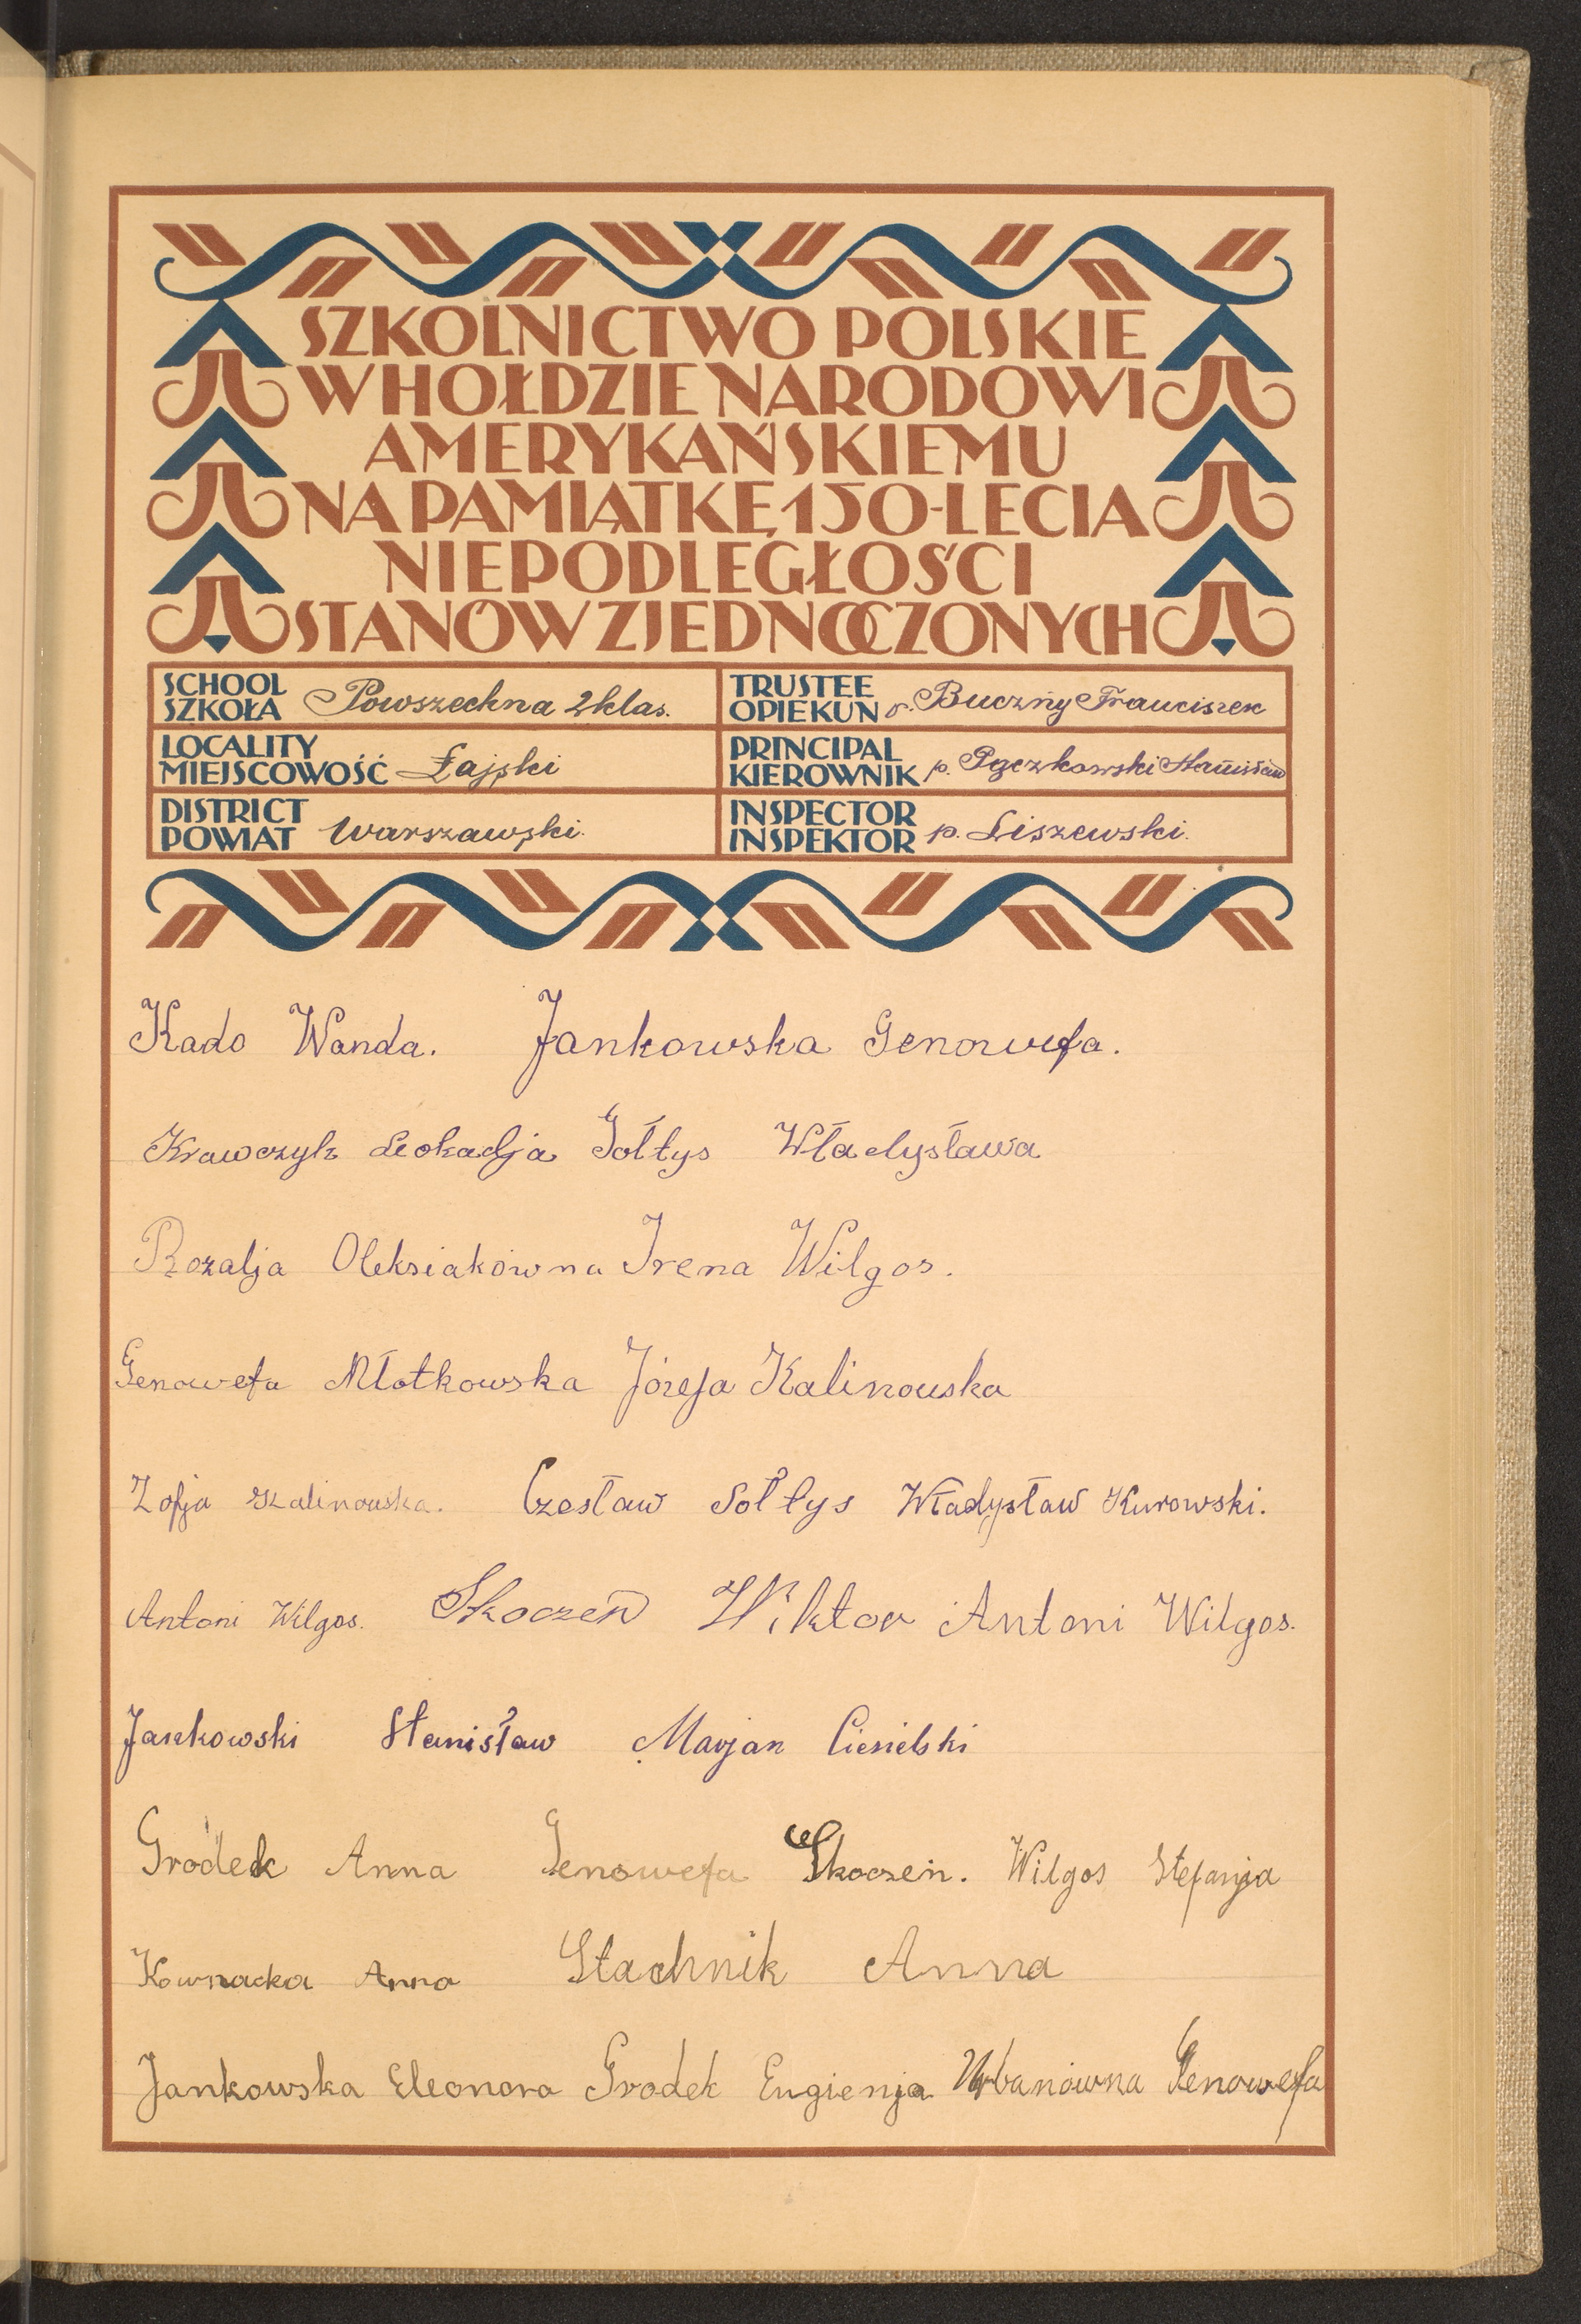 SZKOLNICTWO POLSKIE
W HOŁDZIE NARODOWI
AMERYKAŃSKIEMU
NA PAMIĄTKĘ 150-LECIA
NIEPODLEGŁOŚCI
STANÓW ZJEDNOCZONYCH
SCHOOL
SZKOŁA Powszechna 2 klas.
TRUSTEE
OPIEKUN p. Buczny Franciszek
LOCALITY
MIEJSCOWOŚĆ Łajski
PRINCIPAL
KIEROWNIK p. Pączkowski Stanisław
DISTRICT
POWIAT Warszawski.
INSPECTOR
INSPEKTOR p. Liszewski.
Kado Wanda. Jankowska Genowefa.
Krawczyk Leokadja Sołtys Władysława
Rozalja Oleksiakówna Irena Wilgos.
Genowefa Młotkowska Józefa Kalinowska
Zofja Kalinowska. Czesław Sołtys Władysław Kurowski.
Antoni Wilgos. Skoczeń Wiktor Antoni Wilgos.
Jankowski Stanisław Marjan Ciesielski
Gródek Anna Genowefa Skoczeń. Wilgos Stefanja
Kownacka Anna Stachnik Anna
Jankowska Eleonora Grodek Eugienja Urbanówna Genowefa